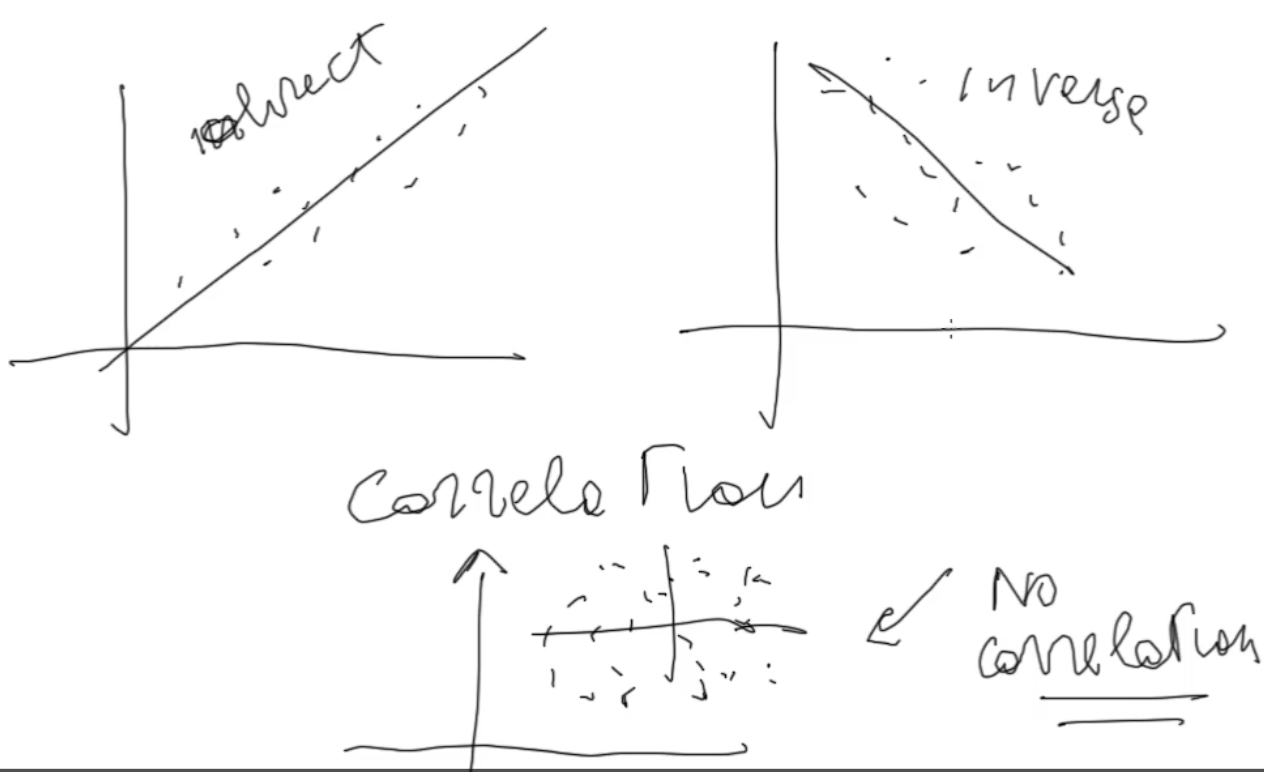 direct
inverse
Correlation
No
correlation